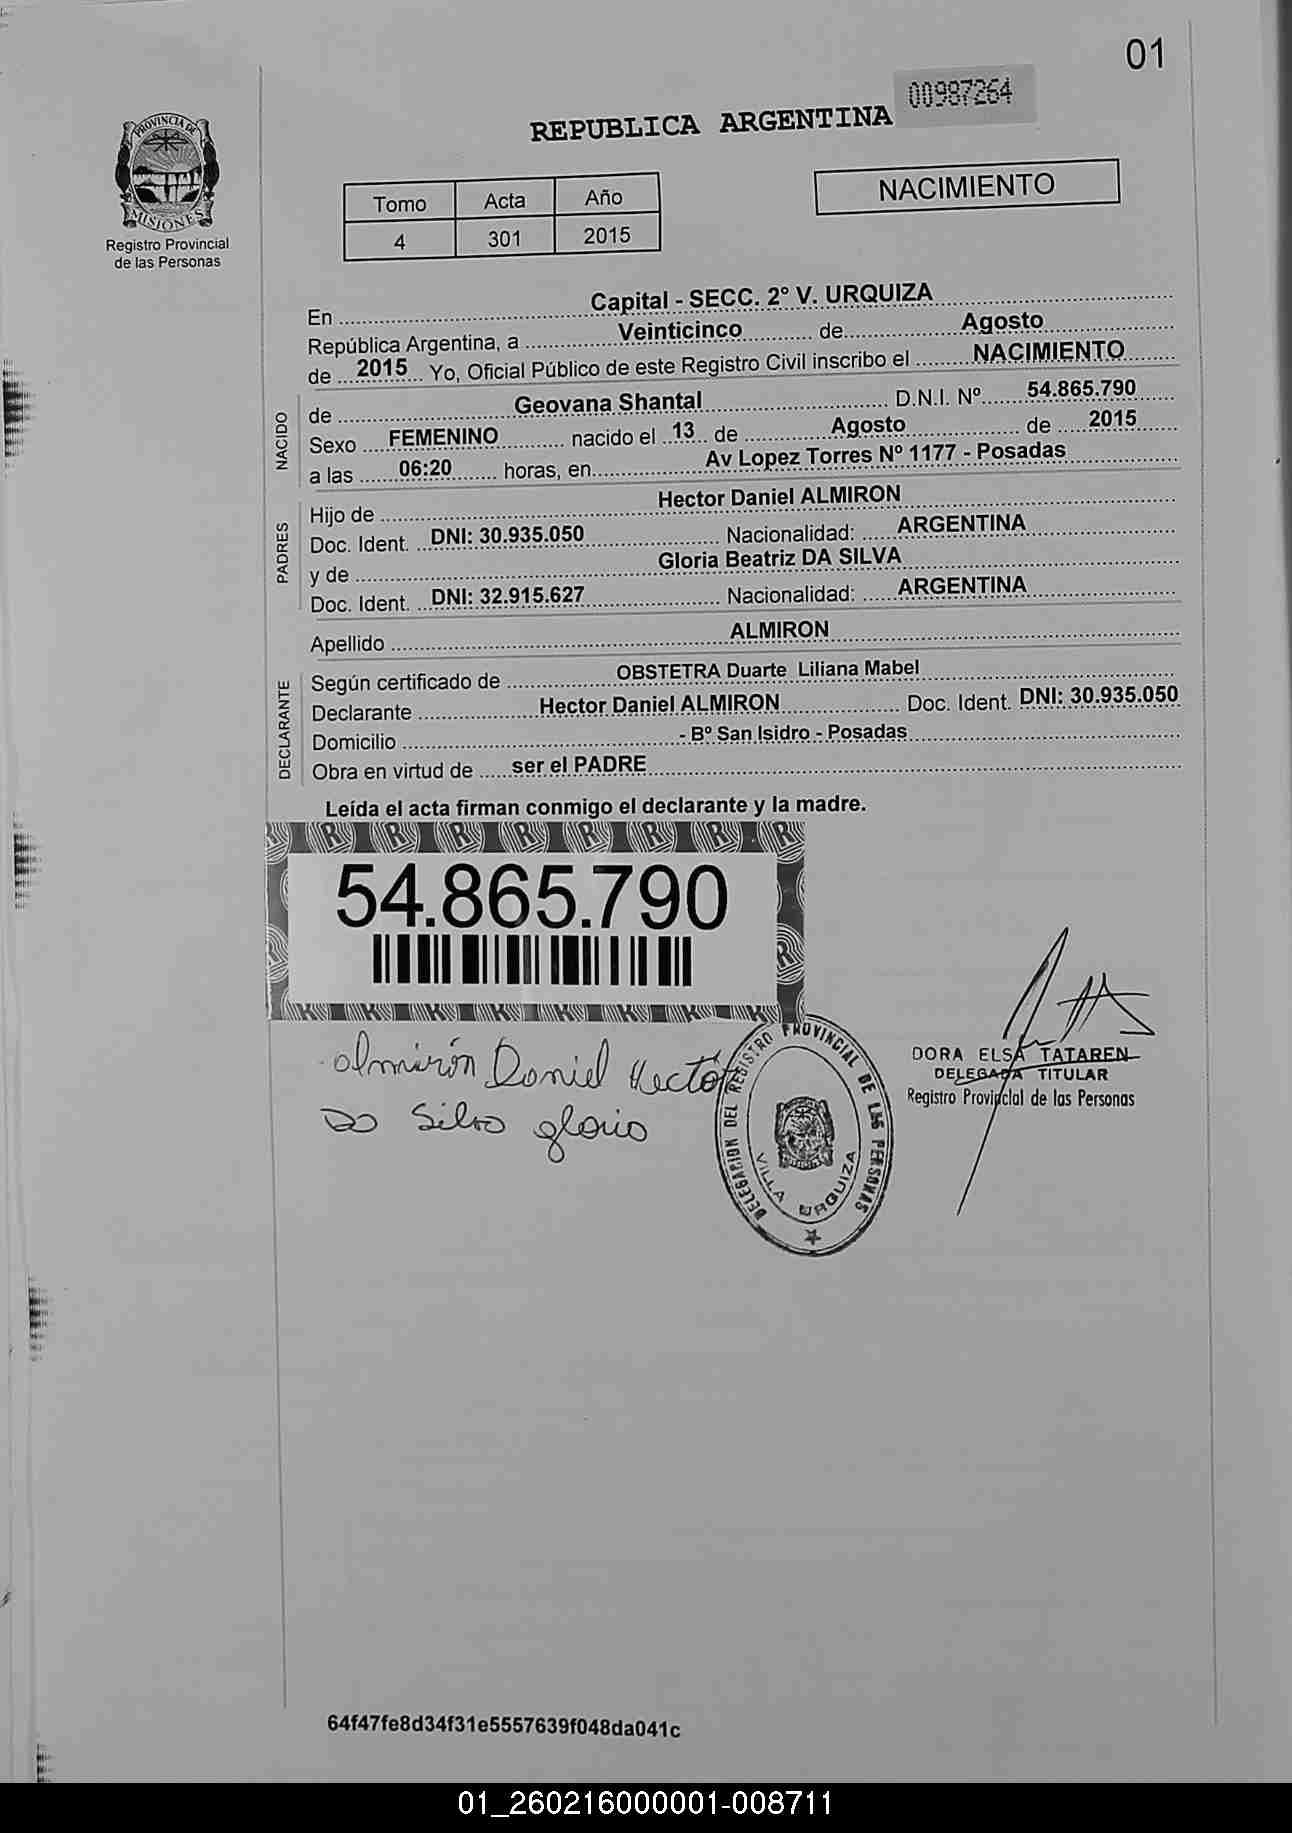 01
00987264
REPUBLICA ARGENTINA
PROVINCIA DE
MISIONES
Registro Provincial
de las Personas
Tomo Acta Año
4 301 2015
NACIMIENTO
En Capital - SECC. 2° V. URQUIZA
República Argentina, a Veinticinco de Agosto
de 2015 Yo, Oficial Público de este Registro Civil inscribo el NACIMIENTO
NACIDO
de Geovana Shantal D.N.I. Nº 54.865.790
Sexo FEMENINO nacido el 13 de Agosto de 2015
a las 06:20 horas, en Av Lopez Torres Nº 1177 - Posadas
PADRES
Hijo de Hector Daniel ALMIRON
Doc. Ident. DNI: 30.935.050 Nacionalidad: ARGENTINA
y de Gloria Beatriz DA SILVA
Doc. Ident. DNI: 32.915.627 Nacionalidad: ARGENTINA
Apellido ALMIRON
DECLARANTE
Según certificado de OBSTETRA Duarte Liliana Mabel
Declarante Hector Daniel ALMIRON Doc. Ident. DNI: 30.935.050
Domicilio - Bº San Isidro - Posadas
Obra en virtud de ser el PADRE
Leída el acta firman conmigo el declarante y la madre.
54.865.790
almirón Daniel Hector
Da Silva gloria
DELEGACION DEL REGISTRO PROVINCIAL DE LAS PERSONAS
VILLA URQUIZA
DORA ELSA TATAREN
DELEGADA TITULAR
Registro Provincial de las Personas
64f47fe8d34f31e5557639f048da041c
01_260216000001-008711